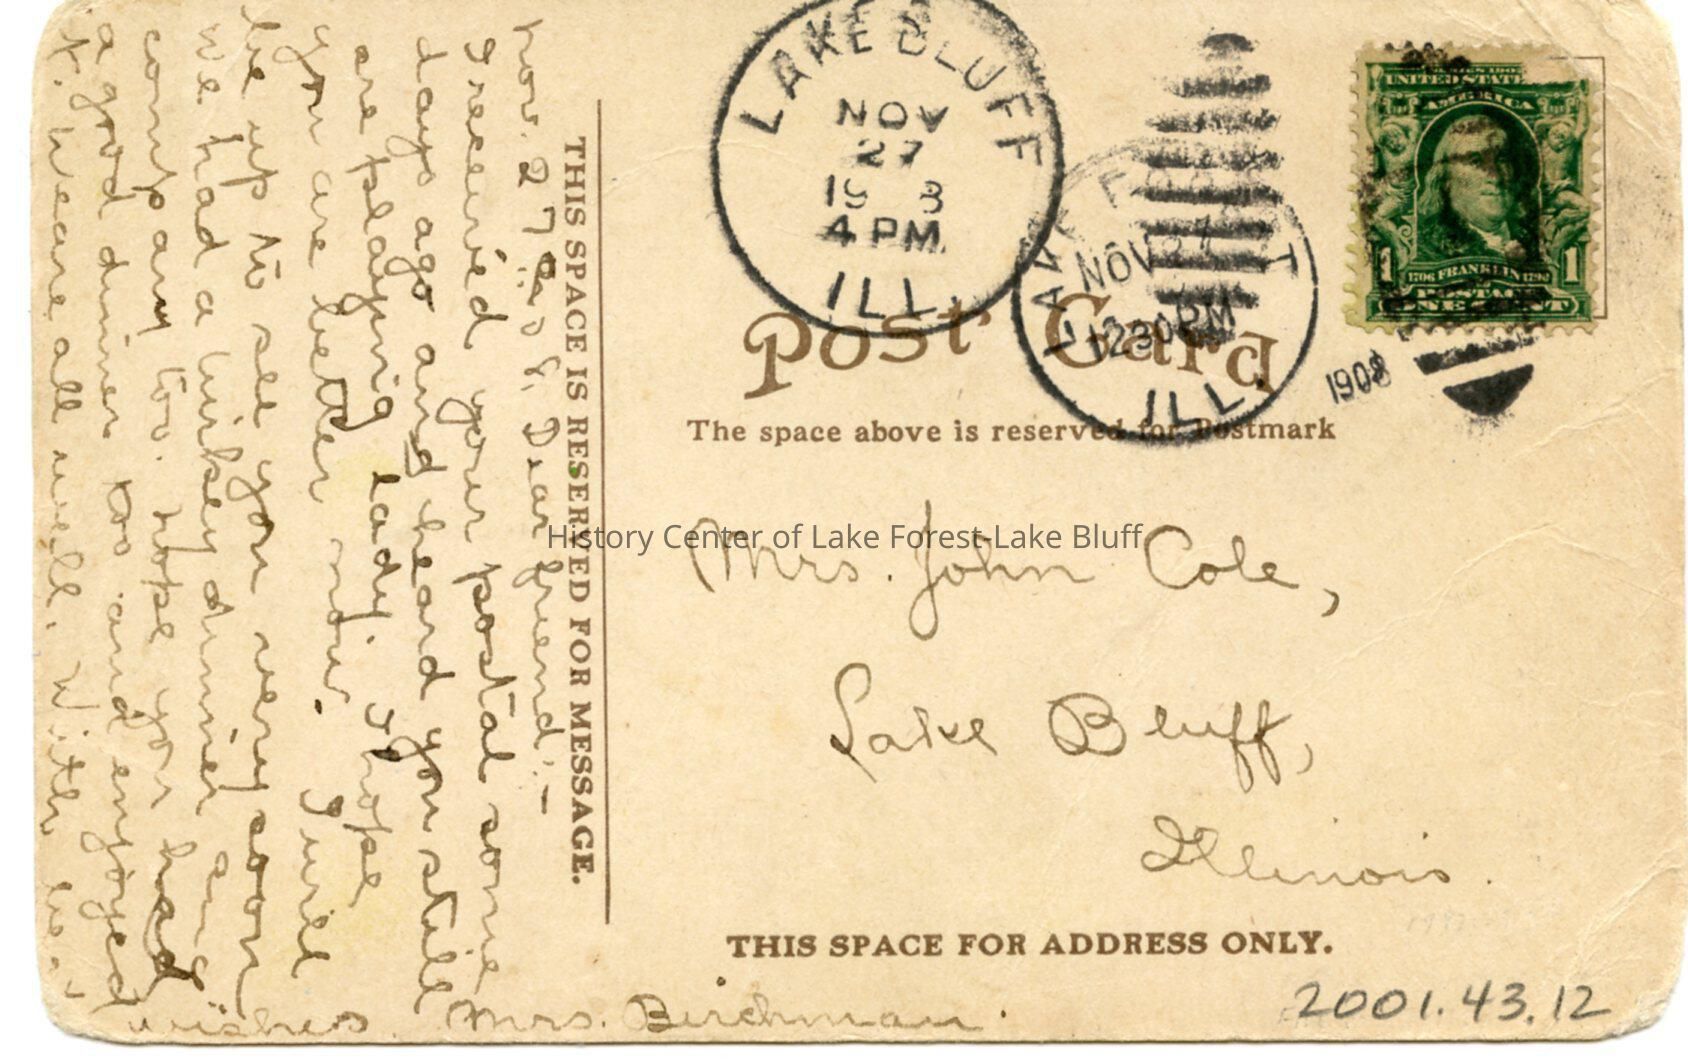 LAKE BLUFF
NOV
27
19 8
4 PM
ILL.
LAKE FOREST
NOV 27
12 30 PM
ILL.
1908
UNITED STATES
AMERICA
1706 FRANKLIN 1790
POSTAGE
1 1
ONE CENT
Post Card
The space above is reserved for Postmark
THIS SPACE IS RESERVED FOR MESSAGE.
Nov. 27 Dear friend:-
I received your postal some
days ago and heard you still
are playing lady. I hope
you are better now. I will
be up to see you very soon
we had a turkey dinner and
company too. Hope you had
a good dinner too and enjoyed
it. We are all well. With best
wishes Mrs. Birchman.
Mrs. John Cole,
Lake Bluff,
Illinois.
THIS SPACE FOR ADDRESS ONLY.
2001.43.12
History Center of Lake Forest-Lake Bluff